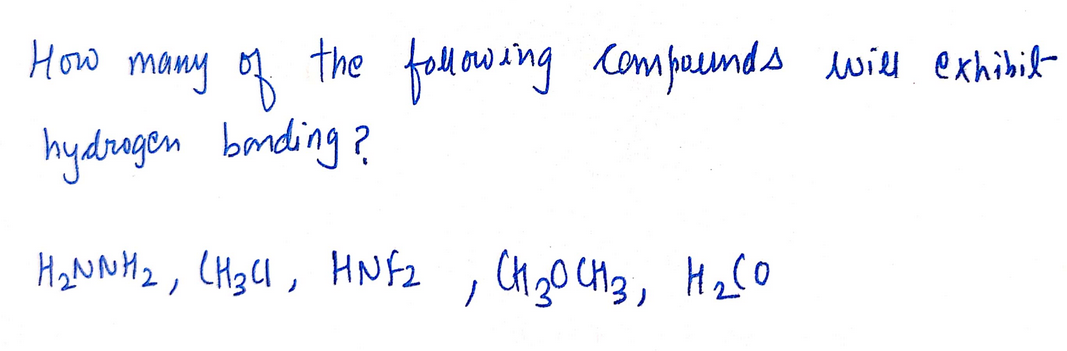 How many of the following compounds will exhibit
hydrogen bonding?
H₂NNH₂, CH₃Cl, HNF₂, CH₃OCH₃, H₂CO